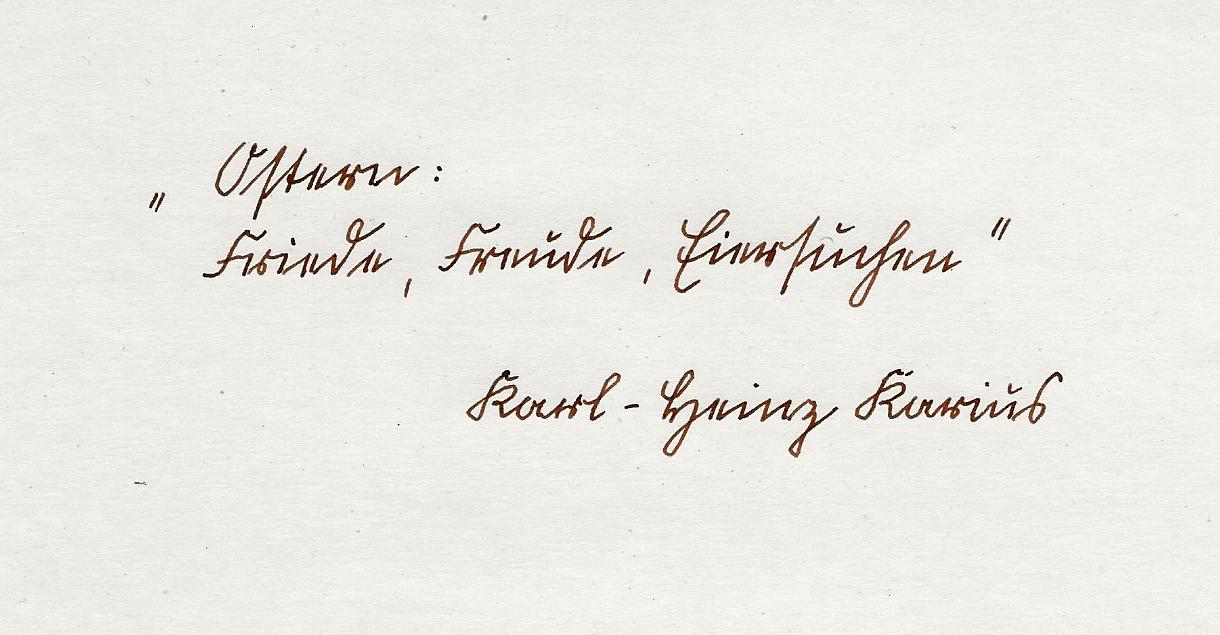 „ Ostern:
Friede, Freude, Eiersuchen "
Karl-Heinz Karius